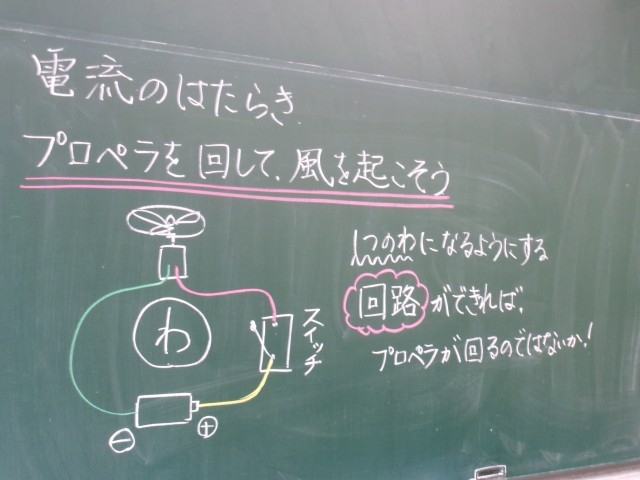 電流のはたらき
プロペラを回して、風を起こそう
1つのわになるようにする
回路ができれば、
プロペラが回るのではないか!
スイッチ
わ
⊖
⊕